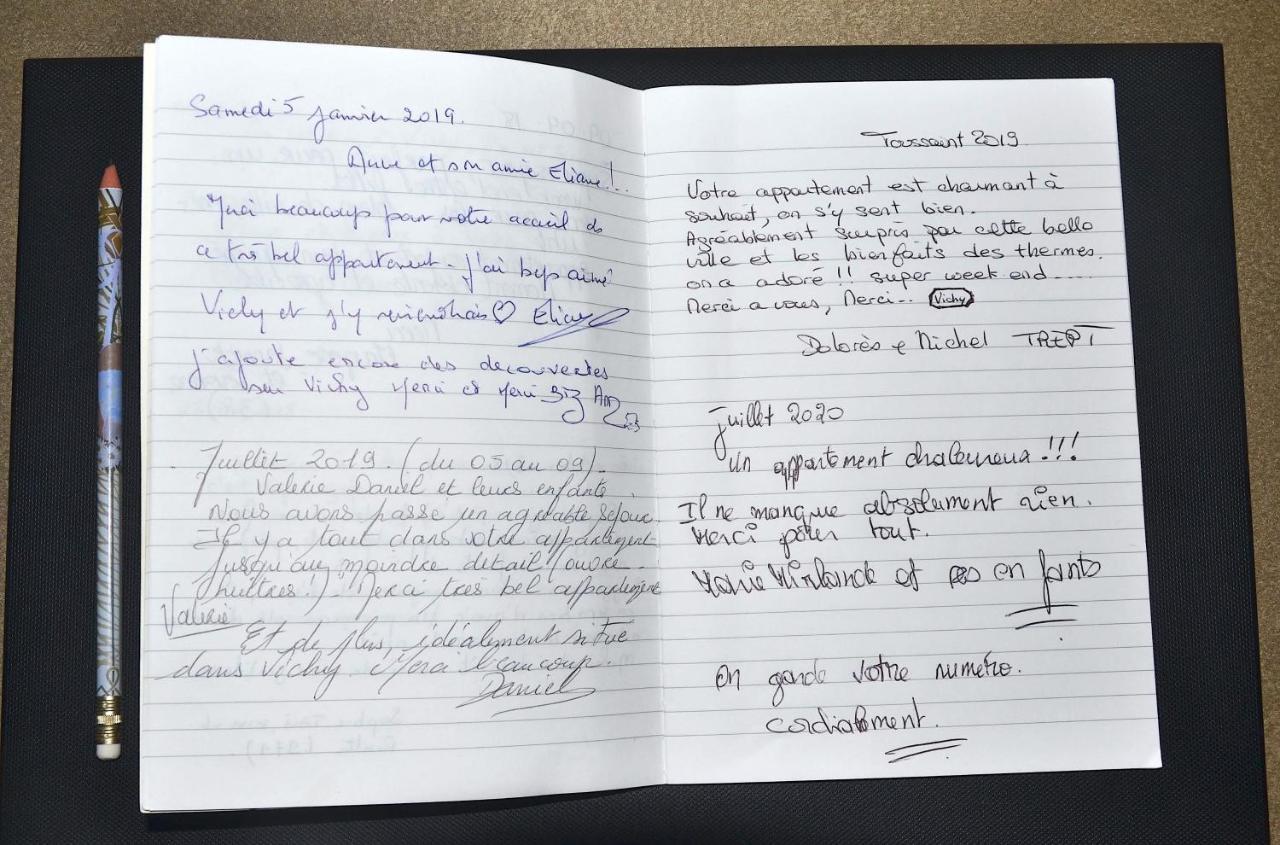 Samedi 5 janvier 2019.
Anne et son amie Eliane!..
Merci beaucoup pour votre accueil de
ce très bel appartement. J'ai bcp aimé
Vichy et j'y reviendrais ♡ Eliane
j'ajoute encore des decouvertes
sur Vichy Merci et Merci Biz
Juillet 2019. (du 05 au 09).
Valerie Daniel et leurs enfants.
Nous avons passé un agréable séjour.
Il y a tout dans votre appartement
jusqu'au moindre détail (ouvre
huîtres!) Merci très bel appartement
Valérie
Et de plus, idéalement situé
dans Vichy. Merci beaucoup.
Daniel
Toussaint 2019
Votre appartement est charmant à
souhait, on s'y sent bien.
Agréablement surpris par cette belle
ville et les bienfaits des thermes.
on a adoré !! super week end.....
Merci a vous, Merci... Vichy
Dolorès e Michel TREPT
juillet 2020
Un appartement chaleureux !!!
Il ne manque absolument rien.
Merci pour tout.
Marie et ses enfants
On garde votre numéro.
cordialement.